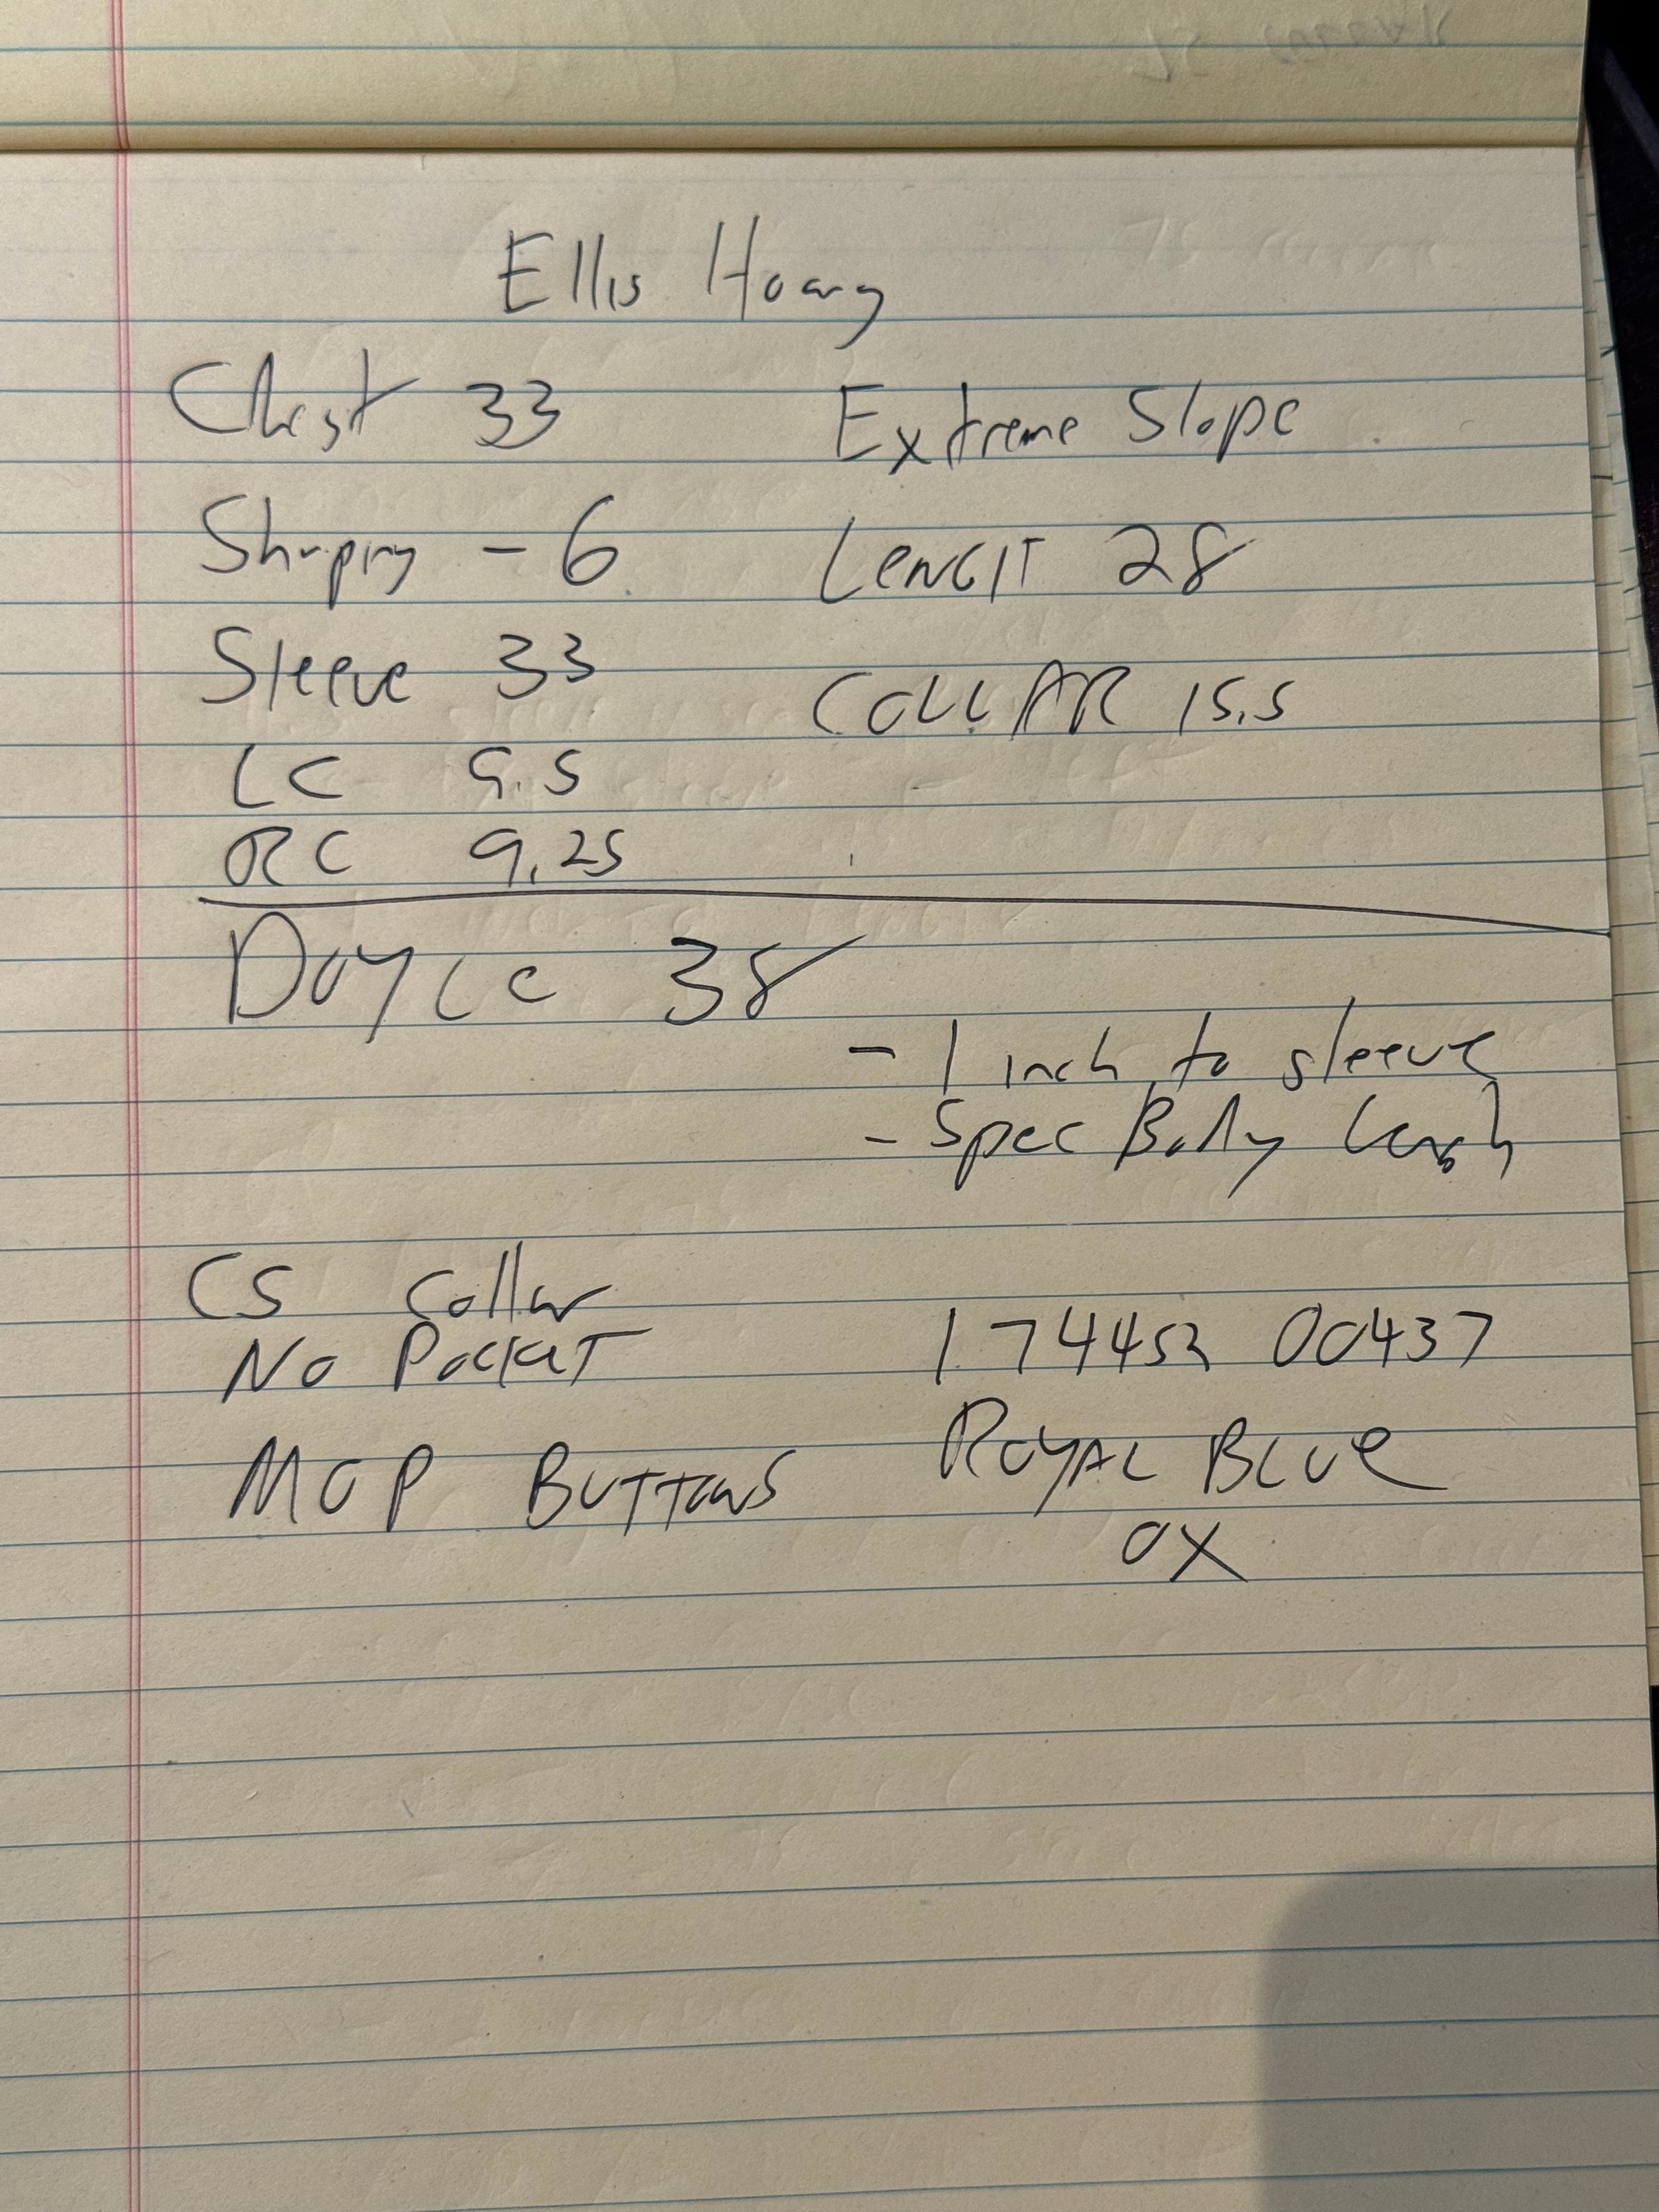 Ellis Hoang
Chest 33 Extreme Slope
Shaping - 6 LENGTH 28
Sleeve 33 COLLAR 15.5
LC 9.5
RC 9.25
DOYLE 38
- 1 inch to sleeve
- Spec Body Length
CS Collar
No POCKET 174452 00437
MOP BUTTONS ROYAL BLUE
OX